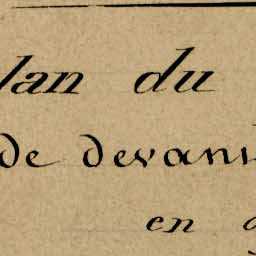 lan du
de devan
en